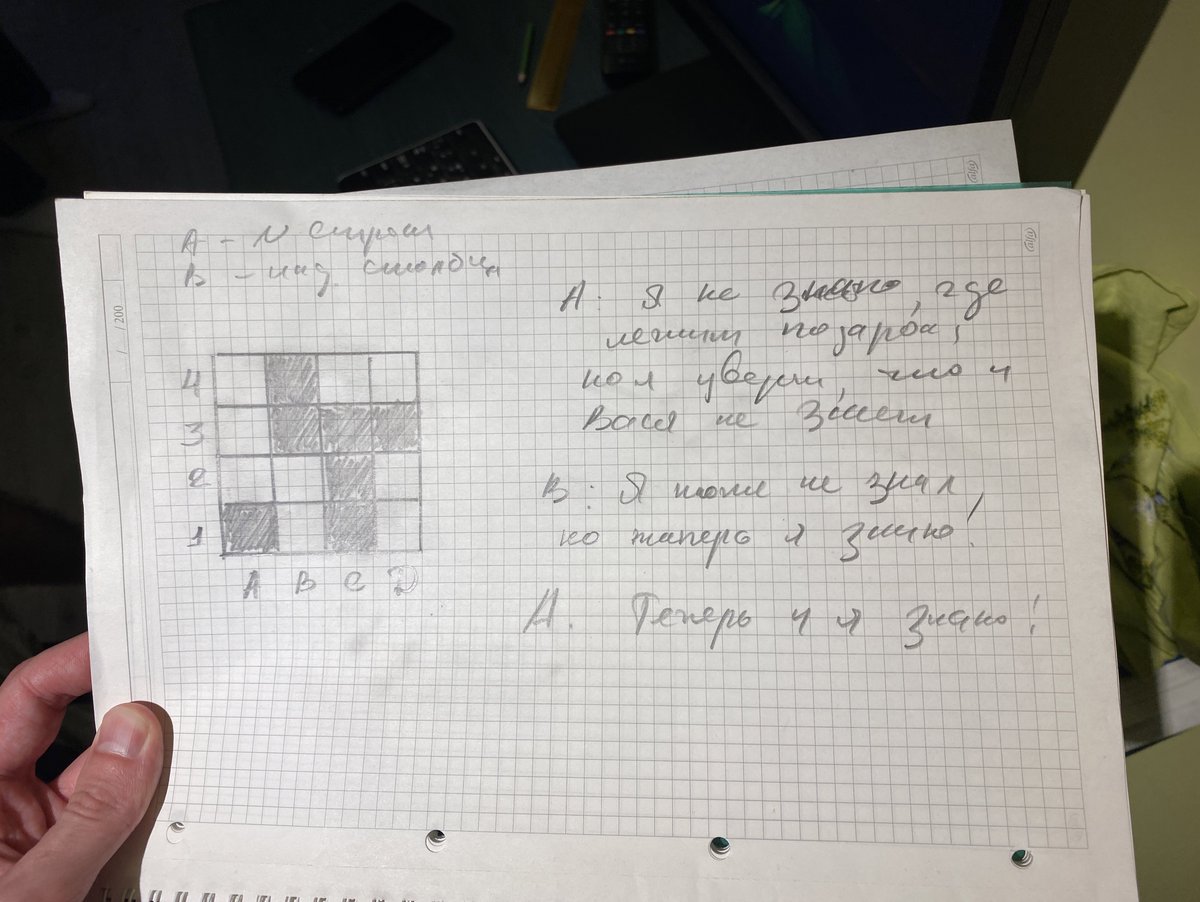 А - N строки
В - инд столбца
А: Я не знаю, где
лежит подарок,
но я уверен, что и
Вася не знает
В: Я тоже не знал,
но теперь я знаю!
А. Теперь и я знаю!
4
3
2
1
A B C D
/ / 200